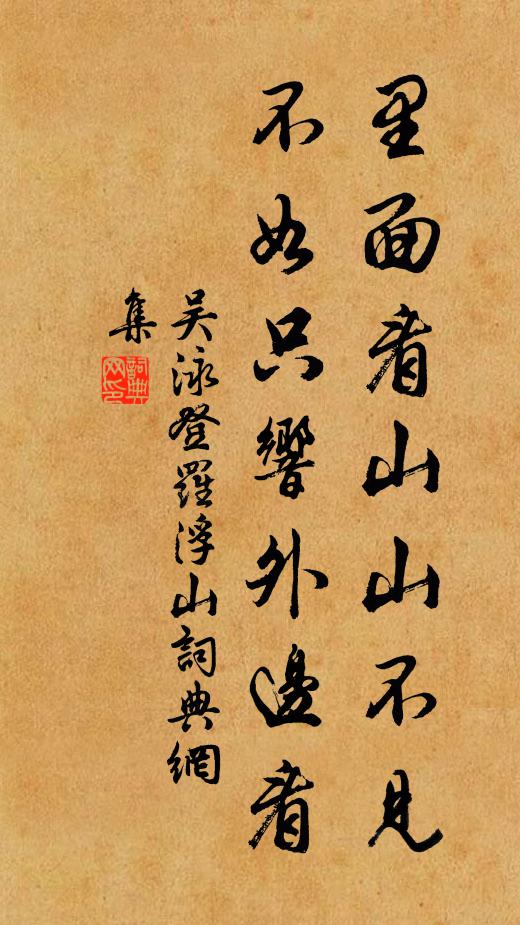 里面看山山不見
不如只響外邊看
吴泳登羅浮山詞典網
集
詞典
网印